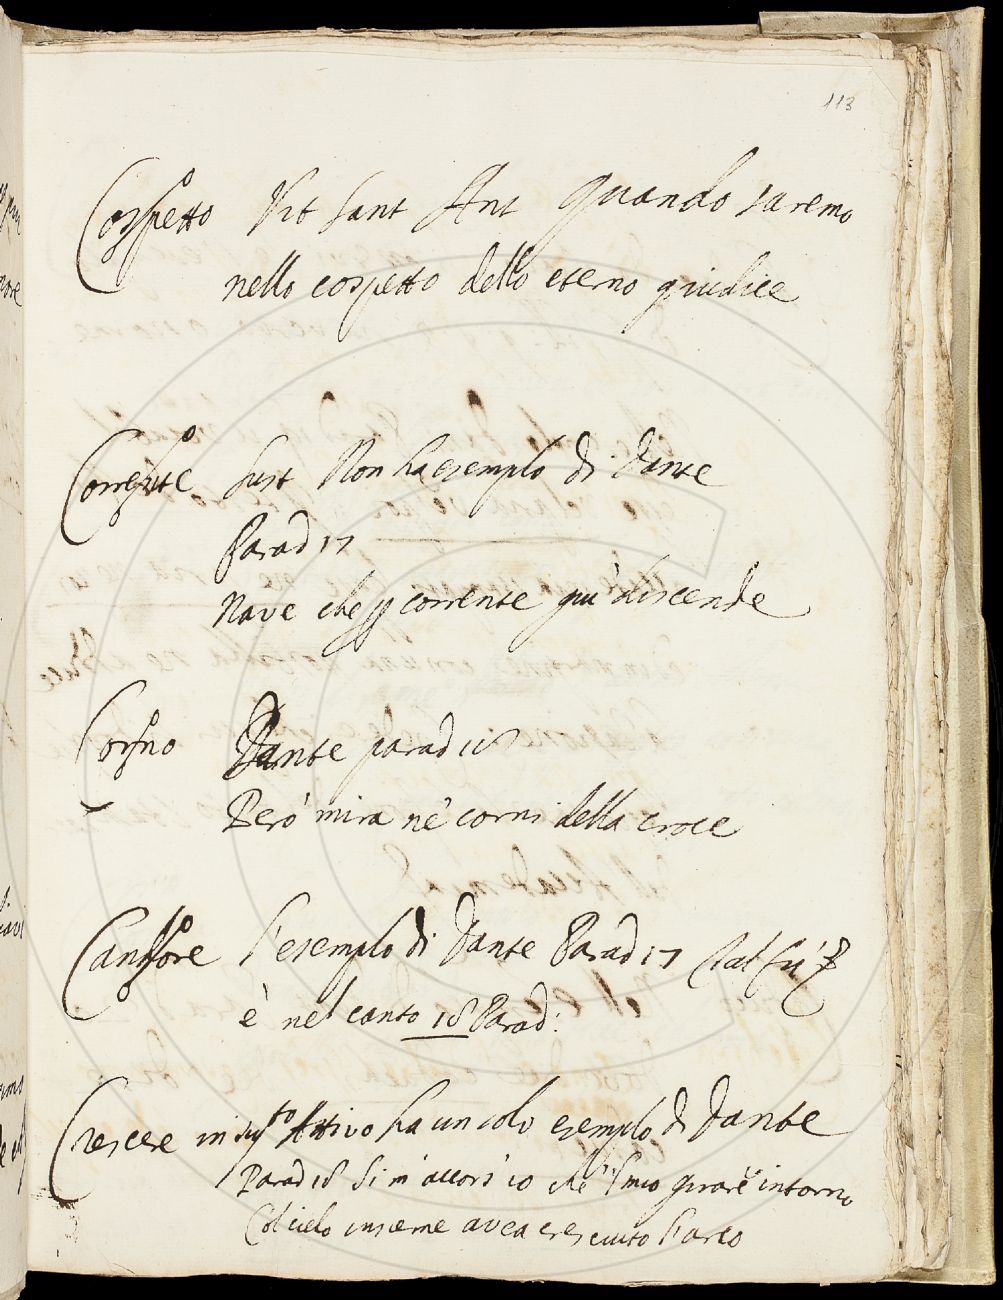 113
Cospetto Vit Sant Ant quando saremo
nello cospetto dello eterno giudice
Corrente Sust Non ha esemplo di Dante
Parad 17
Nave che p corrente giu discende
Corno Dante parad 18
Però mira ne' corni della croce
Cantore l'esemplo di Dante Parad 17
è nel canto 18 Parad:
Crescere in Attivo ha un solo esemplo di Dante
Parad 18 Si m'accors' io che 'l mio girare intorno
Col cielo insieme avea cresciuto l'arco